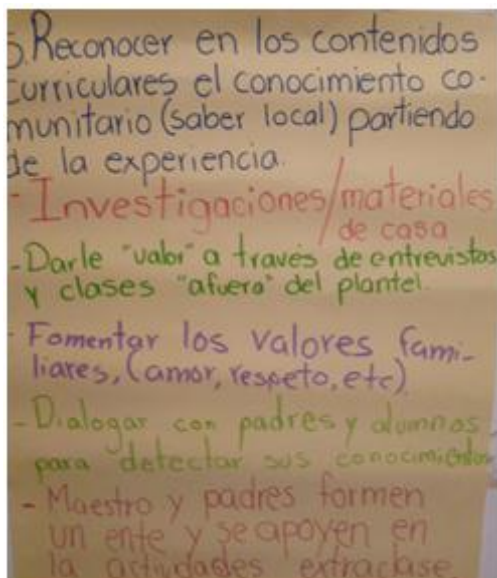 5. Reconocer en los contenidos
curriculares el conocimiento co-
munitario (saber local) partiendo
de la experiencia.
- Investigaciones/materiales
de casa
- Darle "valor" a través de entrevistas
y clases "afuera" del plantel.
- Fomentar los valores fami-
liares, (amor, respeto, etc)
- Dialogar con padres y alumnos
para detectar sus conocimientos
- Maestro y padres formen
un ente y se apoyen en
la actividades extraclase